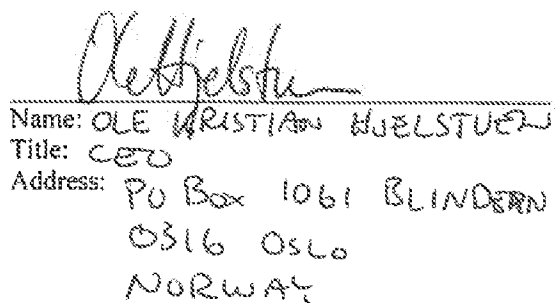 Ole Hjelstuen
Name: OLE KRISTIAN HJELSTUEN
Title: CEO
Address: PO Box 1061 BLINDERN
0316 OSLO
NORWAY